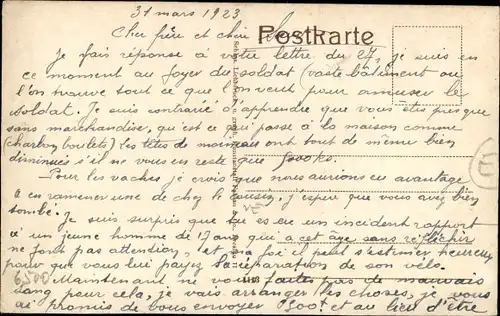 31 mars 1923
Postkarte
Cher frère et chère
Je fais réponse à votre lettre du 27, je suis en
ce moment au foyer du soldat (vaste bâtiment ou
l'on trouve tout ce que l'on veut pour amuser le
soldat. Je suis contrarié d'apprendre que vous êtes presque
sans marchandise, qu'est ce qui passe à la maison comme
(charbon boulets) les têtes de moineau ont tout de même bien
diminuées s'il ne vous en reste que
Pour les vaches je crois que nous aurions eu avantage
à en ramener une de chez j'espère que vous avez bien
tombé. Je suis surpris que tu es eu un incident rapport
à un jeune homme de 17 ans qui à cet âge sans réfléchir
ne font pas attention, et ma foi il peut s'estimer heureux
pour que vous lui payez la réparation de son vélo.
Maintenant ne vous faites pas de mauvais
sang pour cela, je vais arranger les choses, je vous
ai promis de vous envoyer et au lieu d'être